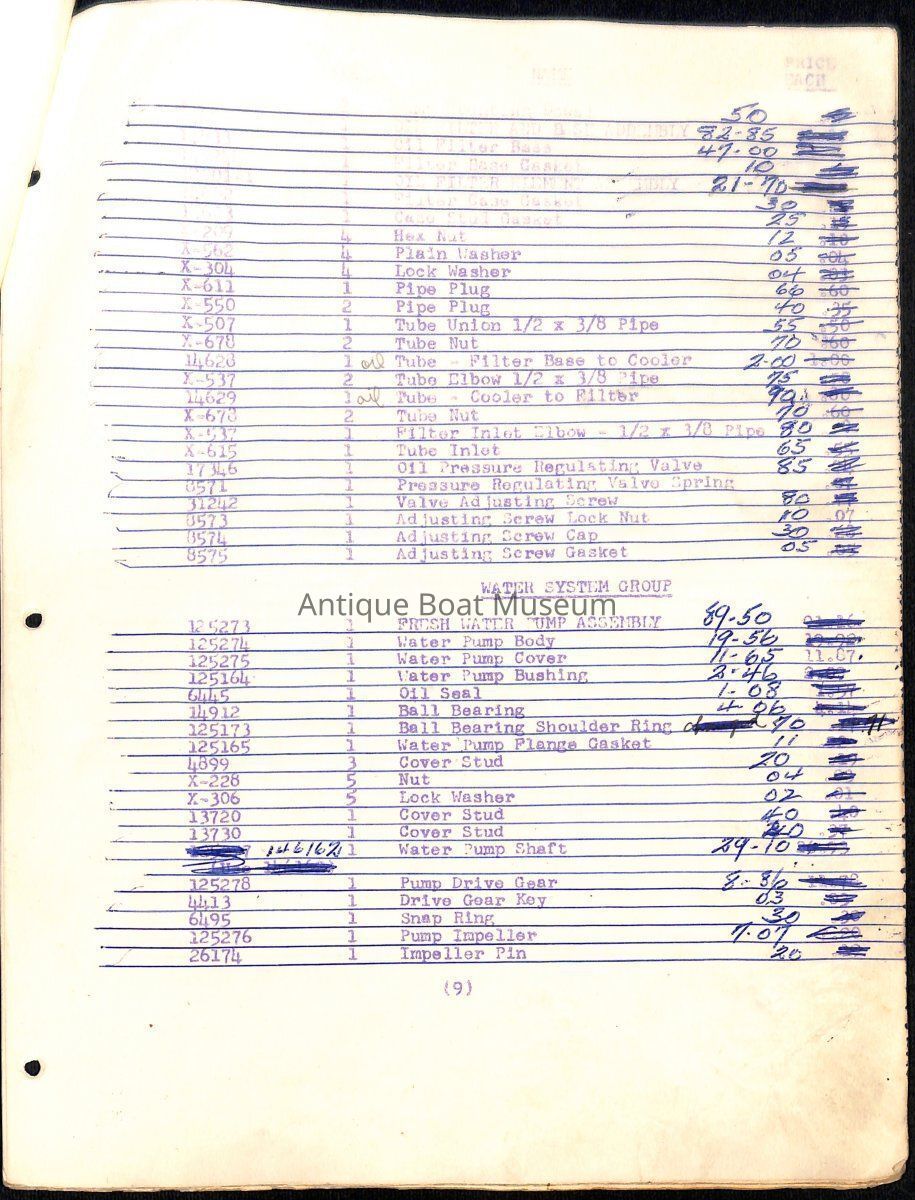 NAME PRICE
EACH
50
AND BASE ASSEMBLY 82-85
1 Oil Filter Base 47-00
1 Filter Base Gasket 10
21-70
1 Filter Case Gasket 30
1 Case Stud Gasket 25
4 Hex Nut 12 .10
X-562 4 Plain Washer 05 .04
X-304 4 Lock Washer 04
X-611 1 Pipe Plug 66 .60
X-550 2 Pipe Plug 40 .35
X-507 1 Tube Union 1/2 x 3/8 Pipe 55 .50
X-678 2 Tube Nut 70 .60
14628 1 oil Tube - Filter Base to Cooler 2-00 1.00
X-537 2 Tube Elbow 1/2 x 3/8 Pipe 75
14629 1 oil Tube - Cooler to Filter 90
X-678 2 Tube Nut 70 .60
X-537 1 Filter Inlet Elbow - 1/2 x 3/8 Pipe 80
X-615 1 Tube Inlet 65
17346 1 Oil Pressure Regulating Valve 85
8571 1 Pressure Regulating Valve Spring
31242 1 Valve Adjusting Screw 80
8573 1 Adjusting Screw Lock Nut 10 .07
8574 1 Adjusting Screw Cap 30
8575 1 Adjusting Screw Gasket 05
WATER SYSTEM GROUP
Antique Boat Museum
125273 1 FRESH WATER PUMP ASSEMBLY 89-50
125274 1 Water Pump Body 19-56
125275 1 Water Pump Cover 11-65 11.87
125164 1 Water Pump Bushing 2-46
6445 1 Oil Seal 1-08
14912 1 Ball Bearing 4-06
125173 1 Ball Bearing Shoulder Ring 70
125165 1 Water Pump Flange Gasket 11
4899 3 Cover Stud 20
X-228 5 Nut 04
X-306 5 Lock Washer 02 .01
13720 1 Cover Stud 40
13730 1 Cover Stud 40
146162 1 Water Pump Shaft 29-10
125278 1 Pump Drive Gear 8-86
4413 1 Drive Gear Key 03
6495 1 Snap Ring 30
125276 1 Pump Impeller 7-07
26174 1 Impeller Pin 20
(9)